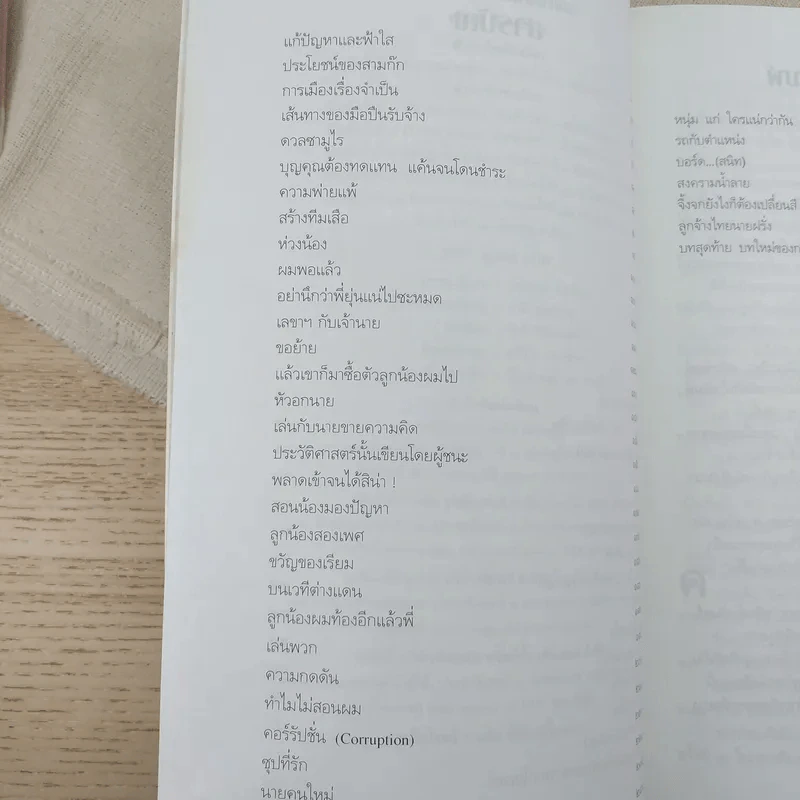 แก้ปัญหาและฟ้าใส
ประโยชน์ของสามก๊ก
การเมืองเรื่องจำเป็น
เส้นทางของมือปืนรับจ้าง
ดวลซามูไร
บุญคุณต้องทดแทน แค้นจนโดนชำระ
ความพ่ายแพ้
สร้างทีมเสือ
ห่วงน้อง
ผมพอแล้ว
อย่านึกว่าพี่ยุ่นแน่ไปซะหมด
เลขาฯ กับเจ้านาย
ขอย้าย
แล้วเขาก็มาซื้อตัวลูกน้องผมไป
หัวอกนาย
เล่นกับนายขายความคิด
ประวัติศาสตร์นั้นเขียนโดยผู้ชนะ
พลาดเข้าจนได้สิน่า !
สอนน้องมองปัญหา
ลูกน้องสองเพศ
ขวัญของเรียม
บนเวทีต่างแดน
ลูกน้องผมท้องอีกแล้วพี่
เล่นพวก
ความกดดัน
ทำไมไม่สอนผม
คอร์รัปชั่น (Corruption)
ซุปที่รัก
นายคนใหม่
หนุ่ม แก่ ใครแน่กว่ากัน
รถกับตำแหน่ง
บอร์ด...(สนิท)
สงครามน้ำลาย
จิ้งจกยังไงก็ต้องเปลี่ยนสี
ลูกจ้างไทยนายฝรั่ง
บทสุดท้าย บทใหม่ของ